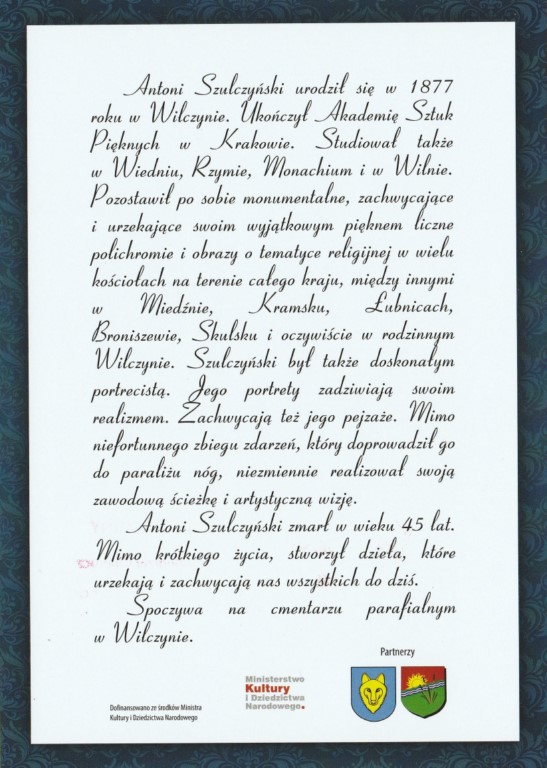 Antoni Szulczyński urodził się w 1877
roku w Wilczynie. Ukończył Akademię Sztuk
Pięknych w Krakowie. Studiował także
w Wiedniu, Rzymie, Monachium i w Wilnie.
Pozostawił po sobie monumentalne, zachwycające
i urzekające swoim wyjątkowym pięknem liczne
polichromie i obrazy o tematyce religijnej w wielu
kościołach na terenie całego kraju, między innymi
w Miedźnie, Kramsku, Łubnicach,
Broniszewie, Skulsku i oczywiście w rodzinnym
Wilczynie. Szulczyński był także doskonałym
portrecistą. Jego portrety zadziwiają swoim
realizmem. Zachwycają też jego pejzaże. Mimo
niefortunnego zbiegu zdarzeń, który doprowadził go
do paraliżu nóg, niezmiennie realizował swoją
zawodową ścieżkę i artystyczną wizję.
Antoni Szulczyński zmarł w wieku 45 lat.
Mimo krótkiego życia, stworzył dzieła, które
urzekają i zachwycają nas wszystkich do dziś.
Spoczywa na cmentarzu parafialnym
w Wilczynie.
Partnerzy
Ministerstwo
Kultury
i Dziedzictwa
Narodowego.
Dofinansowano ze środków Ministra
Kultury i Dziedzictwa Narodowego